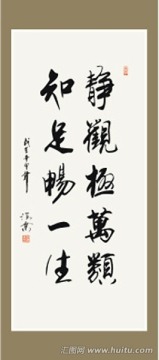 静觀極萬類
知足暢一生
昵图网 www.huitu.com